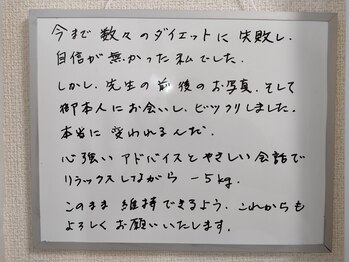 今まで数々のダイエットに失敗し、
自信が無かった私でした。
しかし、先生の前後のお写真、そして
御本人にお会いし、ビックリしました。
本当に変われるんだ。
心強いアドバイスとやさしい会話で
リラックスしながら －5kg。
このまま維持できるよう、これからも
よろしくお願いいたします。